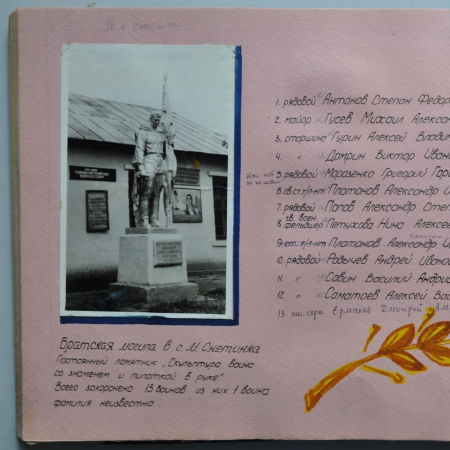 1. рядовой Антонов Степан Федор
2. майор Гусев Михаил Алексан
3. старшина Гурин Алексей Влади
4. " Домрин Виктор Иван
5. рядовой Моразенко Григорий Гор
6. гв.ст.л/-нт Платонов Александр И
7. рядовой Попов Александр Степ
гв. воен.
8. фельдшер Петухова Нина Алексе
9. ст. л/-нт Платонов Александр И
10. рядовой Радычев Андрей Ивано
11 " Савин Василий Андри
12 " Саматаев Алексей Вас
13 мл. серж. Ермаков Дмитрий
Братская могила в с. М. Снетинка
Постоянный памятник „Скульптура воина
со знаменем и пилоткой в руке"
Всего захоронено 13 воинов из них 1 воина
фамилия неизвестна.